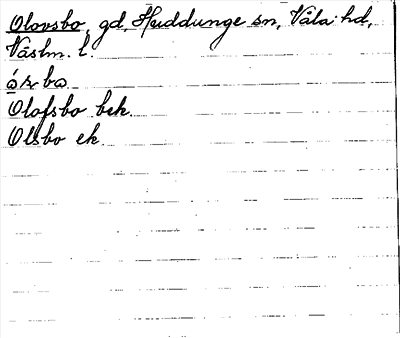 Olovsbo, gd, Huddunge sn, Våla hd,
Västm. l.
Olofsbo bek.
Olsbo ek